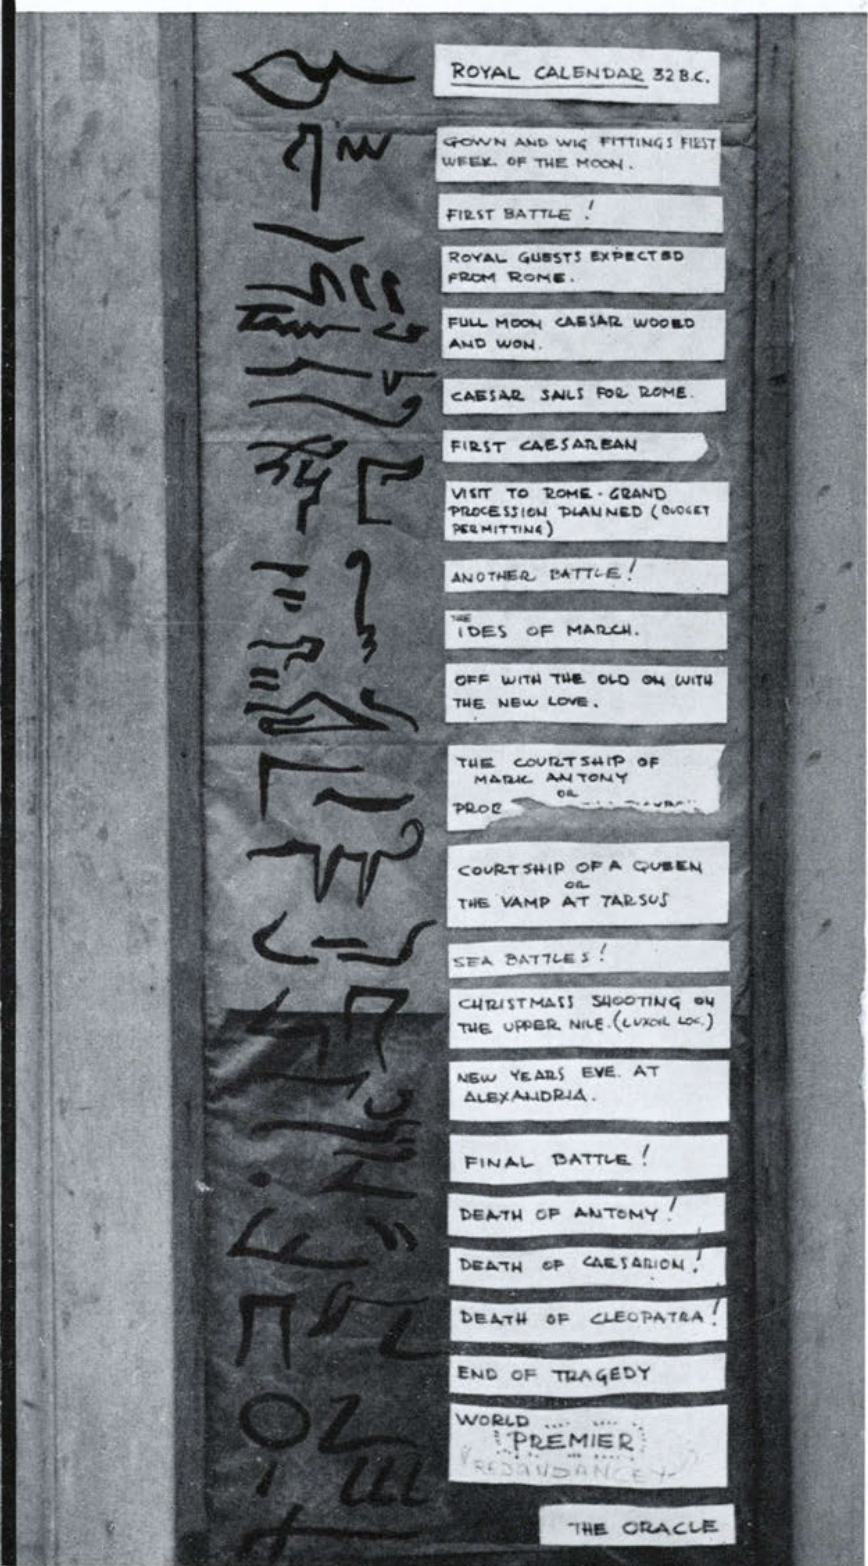 ROYAL CALENDAR 32 B.C.
GOWN AND WIG FITTINGS FIRST
WEEK OF THE MOON.
FIRST BATTLE !
ROYAL GUESTS EXPECTED
FROM ROME.
FULL MOON CAESAR WOOED
AND WON.
CAESAR SAILS FOR ROME.
FIRST CAESAREAN
VISIT TO ROME - GRAND
PROCESSION PLANNED (BUDGET
PERMITTING)
ANOTHER BATTLE!
THE
IDES OF MARCH.
OFF WITH THE OLD ON WITH
THE NEW LOVE.
THE COURTSHIP OF
MARK ANTONY
OR
COURTSHIP OF A QUEEN
OR
THE VAMP AT TARSUS
SEA BATTLES!
CHRISTMASS SHOOTING ON
THE UPPER NILE. (LUXOR LOC.)
NEW YEARS EVE. AT
ALEXANDRIA.
FINAL BATTLE!
DEATH OF ANTONY!
DEATH OF CAESARION!
DEATH OF CLEOPATRA!
END OF TRAGEDY
WORLD
PREMIER
REDUNDANCEY
THE ORACLE